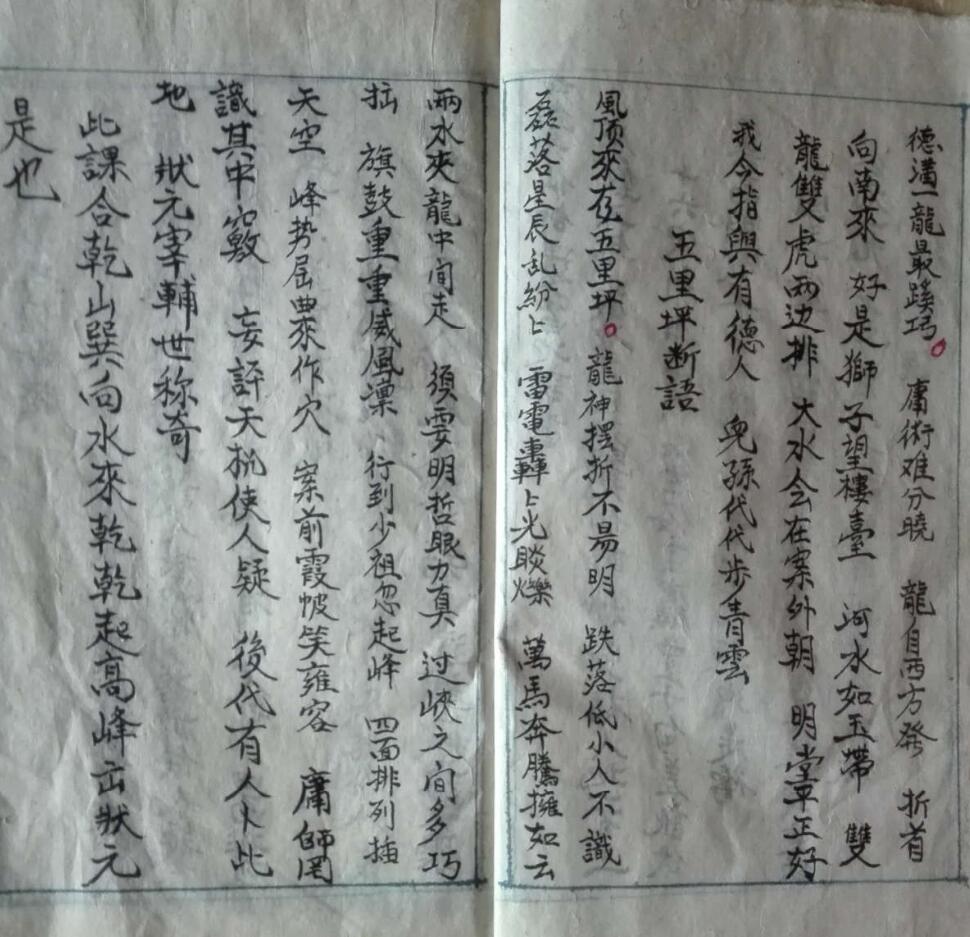 德溝一龍最蹊巧。 庸術难分曉 龍自西方發 折首
向南來 好是獅子望樓臺 河水如玉帶 雙
龍雙虎両边排 大水会在案外朝 明堂平正好
我今指與有德人 兒孫代代步青雲
五里坪断語
風顶來在五里坪。龍神摆折不易明 跌落低小人不識
磊落星辰乱紛〻 雷電轟〻光睒爍 萬馬奔騰擁如云
兩水夾龍中间走 須要明哲眼力真 过峽之间多巧
拙 旗鼓重重威風凜 行到少祖忽起峰 四面排列插
天空 峰势屈曲來作穴 案前霞帔笑雍容 庸師罔
識其中竅 妄評天机使人疑 後代有人卜此
地 狀元宰輔世称奇
此課合乾山巽向水來乾乾起高峰出狀元
是也